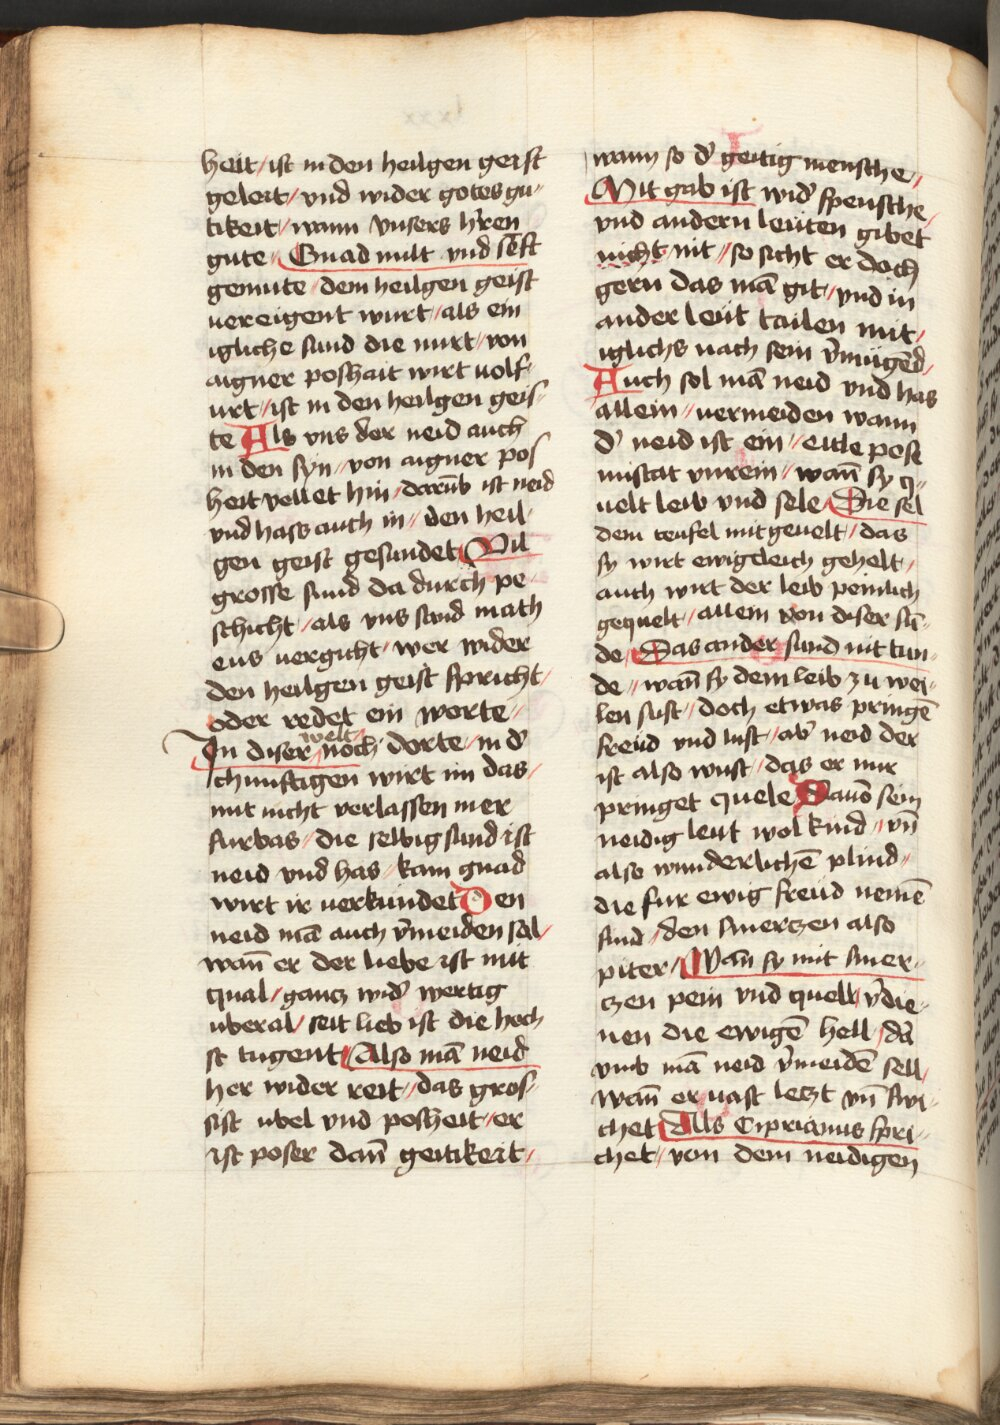 heit / ist in den heilgen geist
geleit / vnd wider gotes gu-
tikeit / wann vnsers h̄ren
gute // Gnad milt vnd seft
gemute / dem heilgen geist
uereigent wurt // als ein
igliche sund die nurt / von
aigner poshait wirt uolf-
urt // ist in den heilgen geis-
te Als vns der neid auch
in den syn // von aigner pos
heit vellet hin / darūb ist neid
vnd hass auch in // den heil-
gen geist gesundet Vil
grosse sund da durch pe-
schicht / als vns sand math
eus uergicht / wer wider
den heilgen geist spricht /
oder redet ein worte //
welt
In diser / noch / dorte / in d̕
chunftigen wirt im das /
mit nicht verlassen mer
furbas // die selbig sund ist
neid vnd has / kam gnad
wirt ir uerkundet Den
neid mā auch v̄meiden sol /
wan̄ er der liebe ist mit
qual / gancz wid̕ wertig
uberal / seit lieb ist die hoch
st tugent Also mā neid
her wider reit / das gros-
sist ubel vnd posheit / er
ist poser dan̄ geitikeit /
wann so d̕ geitig mensche //
Mit gab ist wid̕ spensche /
vnd andern leuten gibet
nicht nit // so sicht er doch
gern das mā git / vnd in
ander leut tailen mit /
iglichs nach sein v̄mügēd /
Auch sol mā neid vnd has
allein // uermeiden wann
d̕ neid ist ein // eitle pose
mistat vnrein // wan̄ sy q-
uelt leib vnd sele Die sel
dem teufel mit geuelt / das
sy wirt ewigcleich gehelt /
auch wirt der leib peinlich
gequelt / allem von diser sū-
de / Das ander sund nit tun-
de // wan̄ sy dem leib zu wei-
len sust / doch etwas pringē
freud vnd lust / ab̕ neid der
ist also wust / das er nur
pringet quele Dauō sein
neidig leut wol kind // vn̄
also wunderlichē plind //
die fur ewig freud nemē
sind / den smerczen also
piter / Wan̄ sy mit smer-
czen pein vnd quell / v̄die-
nen die ewigē hell / da
vmb mā neid v̄meidē sell /
wan̄ er uast leczt vn̄ swe-
chet Als Ciprianus spri-
chet // von dem neidigen